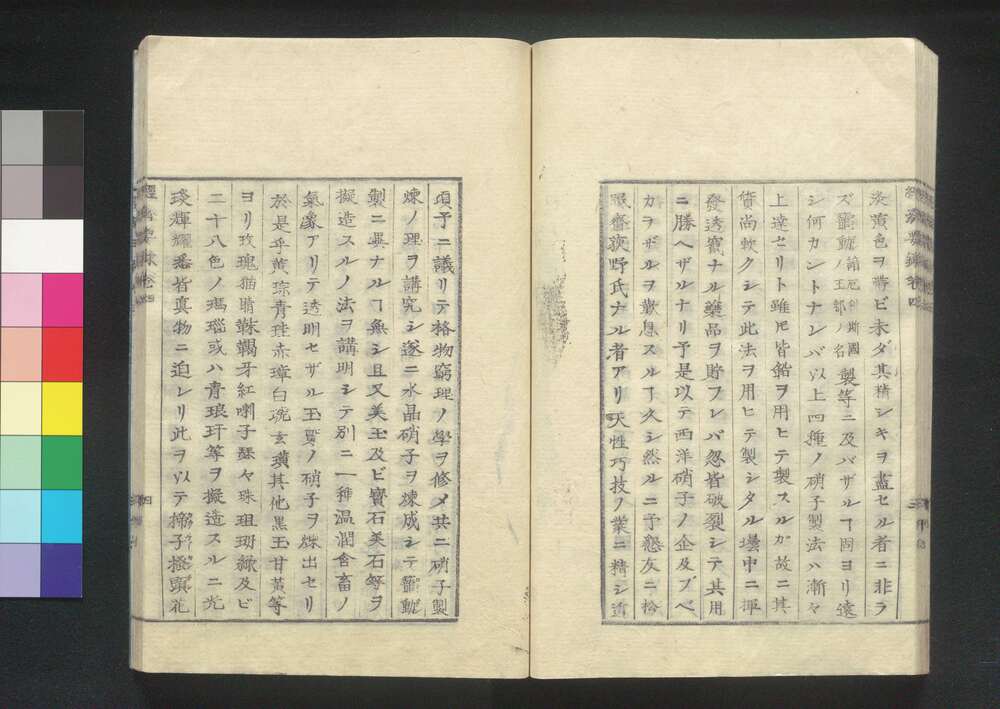 淡黄色ヲ帯ビ未ダ其精シキヲ盡セル者ニ非ラ
ズ製等ニ及バザルヿ固ヨリ遠
シ何カントナレバ以上四種ノ硝子製法ハ漸々
上達セリト雖𪜈皆鉛ヲ用ヒテ製スルガ故ニ其
質尚軟クシテ此法ヲ用ヒテ製シタル壜中ニ揮
發透竄ナル藥品ヲ貯フレバ忽皆破裂シテ其用
ニ勝ヘザルナリ予是以テ西洋硝子ノ企及ブベ
カラザルヲ歎息スルヿ久シ然ルニ予懇友ニ
齋荻野氏ナル者アリ天性巧技ノ業ニ精シ
頃予ニ議リテ格物窮理ノ學ヲ修メ共ニ硝子製
煉ノ理ヲ講究シ遂ニ水晶硝子ヲ煉成シテ
製ニ異ナルヿ無シ且又美玉及ビ寳石美石等ヲ
擬造スルノ法ヲ講明シテ別ニ一種温潤含畜ノ
氣象アリテ透明セザル玉質ノ硝子ヲ煉出セリ
於是乎黄琮青珪赤璋白琥玄璜其他黒玉甘黄等
ヨリ玫瑰猫睛靺鞨牙紅喇子瑟々珠珇𤥭緑及ビ
二十八色ノ瑪瑙或ハ青琅玕等ヲ擬造スルニ光
琰輝耀悉皆真物ニ迫レリ此ヲ以テ子頭花